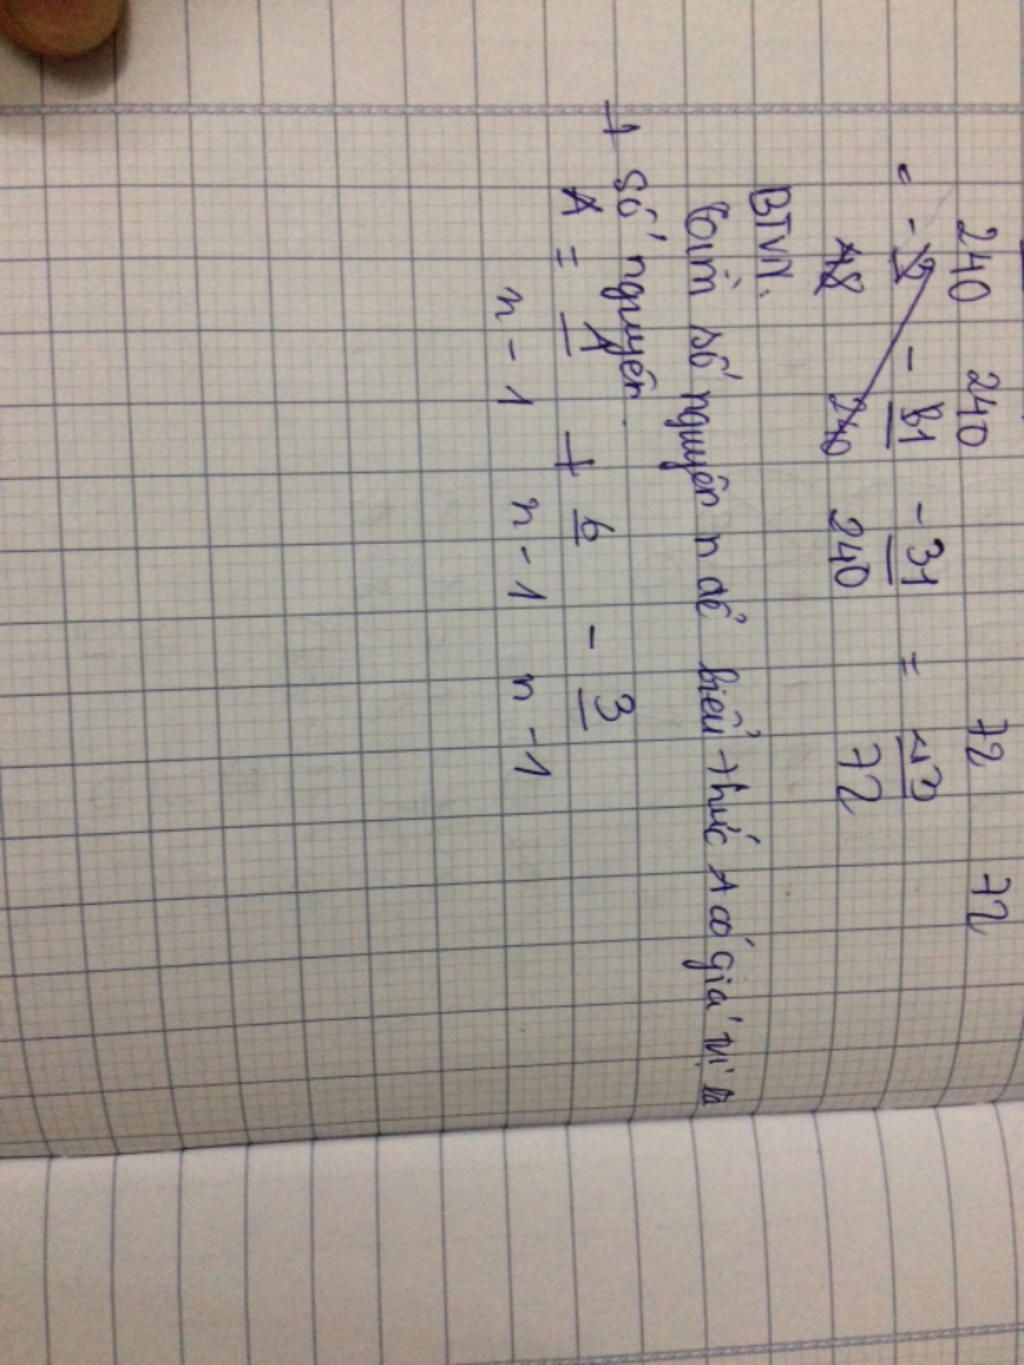 240 240 72 72
= - - 81 - 31 = 
240 240 72
BTVN.
Tìm số nguyên n để biểu thức A có giá trị là
+ số nguyên
A = 1 + 6 - 3
n - 1 n - 1 n - 1